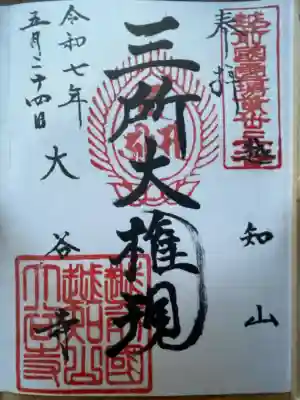 奉拝
越知山
三所大権現
大谷寺
令和七年
五月二十四日
越前國
越知山
大谷寺